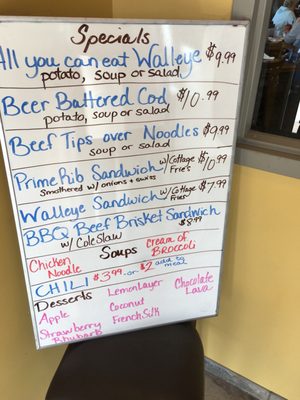 Specials
All you can eat Walleye $9.99
potato, soup or salad
Beer Battered Cod $10.99
potato, soup or salad
Beef Tips over Noodles $7.99
soup or salad
Prime Rib Sandwich w/Cottage Fries $10.99
Smothered w/ onions + swiss
Walleye Sandwich w/Cottage Fries $7.99
BBQ Beef Brisket Sandwich
w/ Cole Slaw $8.99
Soups
Chicken Noodle
Cream of Broccoli
CHILI $3.99 or $2 add to meal
Desserts
Apple
Strawberry Rhubarb
Lemon Layer
Coconut
French Silk
Chocolate Lava